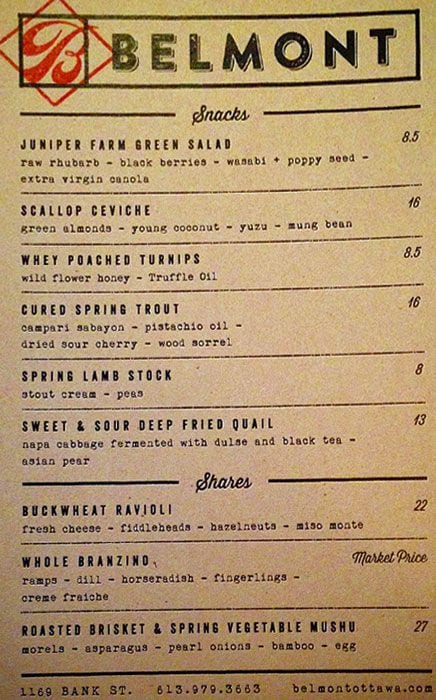 B BELMONT
Snacks
JUNIPER FARM GREEN SALAD 8.5
raw rhubarb - black berries - wasabi + poppy seed -
extra virgin canola
SCALLOP CEVICHE 16
green almonds - young coconut - yuzu - mung bean
WHEY POACHED TURNIPS 8.5
wild flower honey - Truffle Oil
CURED SPRING TROUT 16
campari sabayon - pistachio oil -
dried sour cherry - wood sorrel
SPRING LAMB STOCK 8
stout cream - peas
SWEET & SOUR DEEP FRIED QUAIL 13
napa cabbage fermented with dulse and black tea -
asian pear
Shares
BUCKWHEAT RAVIOLI 22
fresh cheese - fiddleheads - hazelneuts - miso monte
WHOLE BRANZINO Market Price
ramps - dill - horseradish - fingerlings -
creme fraiche
ROASTED BRISKET & SPRING VEGETABLE MUSHU 27
morels - asparagus - pearl onions - bamboo - egg
1169 BANK ST. 613.979.3663 belmontottawa.com